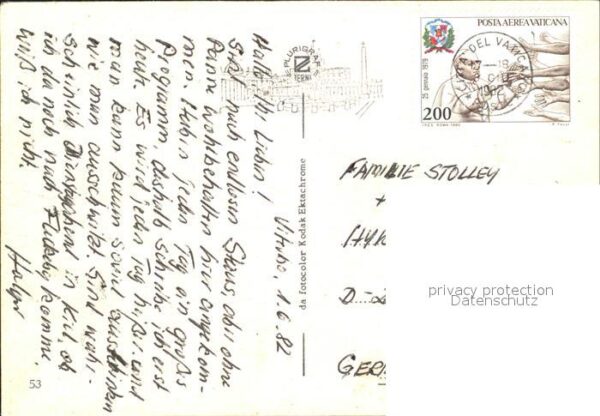 Viturbo, 1.6.82
Hallo Ihr Lieben!
Sind nach endlosen Staus, aber ohne
Panne wohlbehalten hier angekom-
men. Haben jeden Tag ein großes
Programm, deshalb schreibe ich erst
heute. Es wird jeden Tag heißer und
man kann kaum soviel austrinken
wie man ausschwitzt. Sind wahr-
scheinlich Dienstagabend in Kiel, ob
ich da noch nach komme,
weiß ich nicht.
da fotocolor Kodak Ektachrome
PLURIGRAF
TERNI
53
POSTA AEREA VATICANA
25 gennaio 1979
200
CITTA DEL VATICANO
1982
FAMILIE STOLLEY
+
D-
GER
privacy protection
Datenschutz